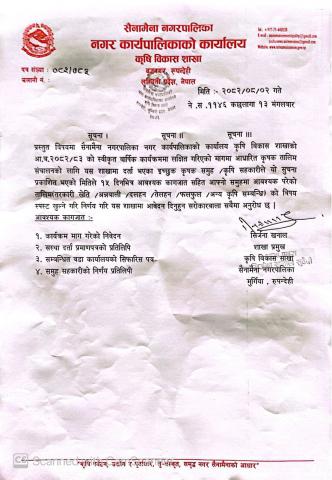 सैनामैना नगरपालिका
नगर कार्यपालिकाको कार्यालय
कृषि विकास शाखा
बुद्धनगर, रुपन्देही
लुम्बिनी प्रदेश, नेपाल
पत्र संख्या : ०८२/०८३
चलानी नं.
मिति :- २०८२/०८/०२ गते
ने.स. ११४६ कछलागा १३ मंगलवार
सूचना । सूचना ॥ सूचना ॥।
प्रस्तुत विषयमा सैनामैना नगरपालिका नगर कार्यपालिकाको कार्यालय कृषि विकास शाखाको
आ.व.२०८२/८३ को स्वीकृत वार्षिक कार्यक्रममा लक्षित गरिएको मागमा आधारित कृषक तालिम
संचालनको लागि यस शाखामा दर्ता भएका इच्छुक कृषक समुह / कृषि सहकारीले यो सुचना
प्रकाशित भएको मितिले १५ दिनभित्र आवश्यक कागजात सहित आफ्नो समुहमा आवश्यक परेको
तालिम(तरकारी खेति / अन्नबाली / दलहन / तेलहन / फलफुल /अन्य कृषि सम्बन्धि) को बिषय
स्पस्ट खुल्ने गरि निर्णय गरि यस शाखामा आवेदन दिनुहुन सरोकारवाला सबैमा अनुरोध छ ।
आवश्यक कागजात:
१. कार्यक्रम माग गरेको निवेदन
२. संस्था दर्ता प्रमाणपत्रको प्रतिलिपी
३. सम्बन्धित वडा कार्यालयको सिफारिस पत्र
४. समुह सहकारीको निर्णय प्रतिलिपी
सिर्जना खनाल
शाखा प्रमुख
कृषि विकास शाखा
सैनामैना नगरपालिका
मुर्गिया, रुपन्देही
Scanned with